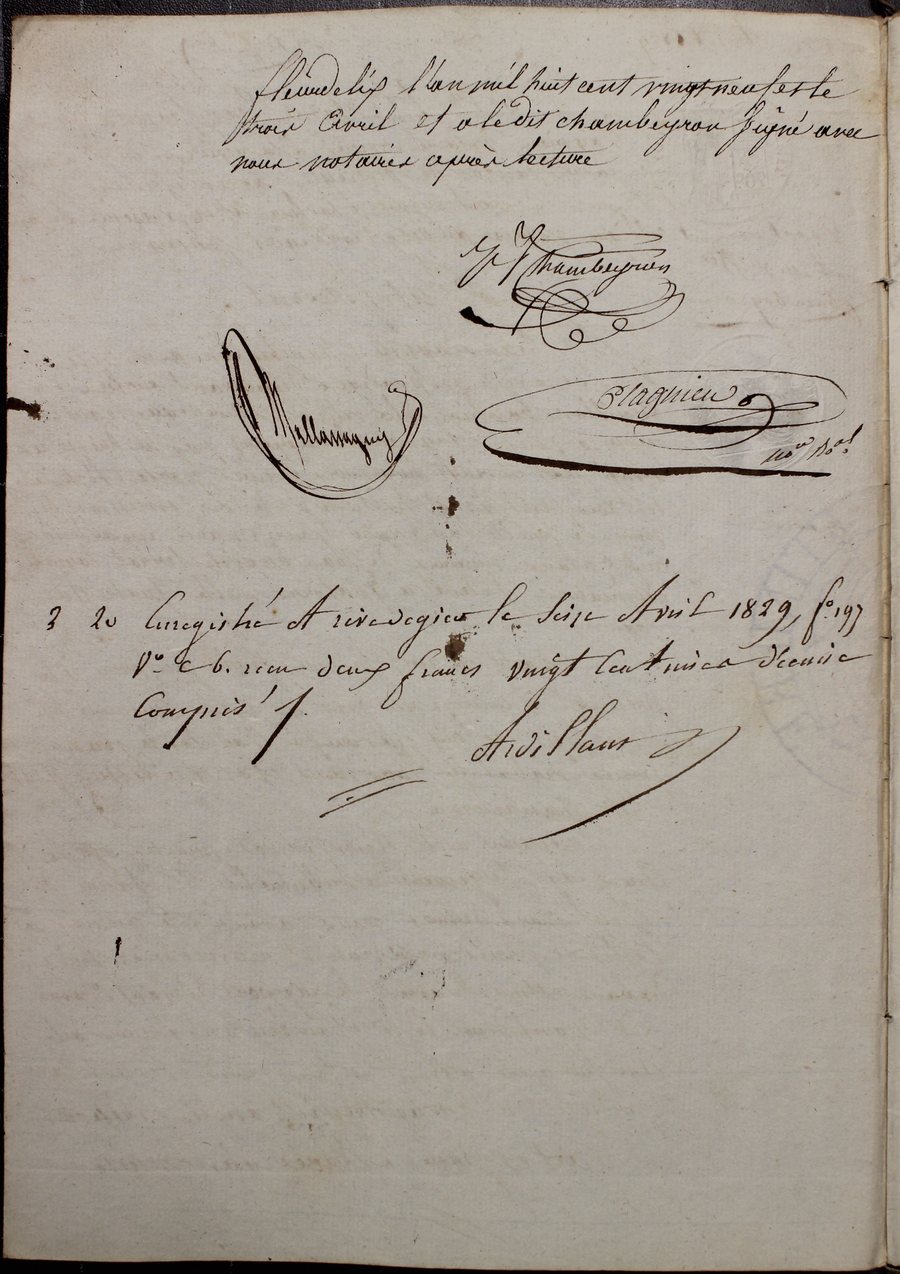 fleurdelix l'an mil huit cent vingt neuf et le
trois avril et a ledit chambeyron signé avec
nous notaires après lecture
Chambeyron
Mallassagny
Plagnieu
no.re Ro.al
2 20 Enregistré A rivedegier le seize Avril 1829, f.o 197
V.o c 6. recu deux francs vingt centimes décime
Compris
Ardillant